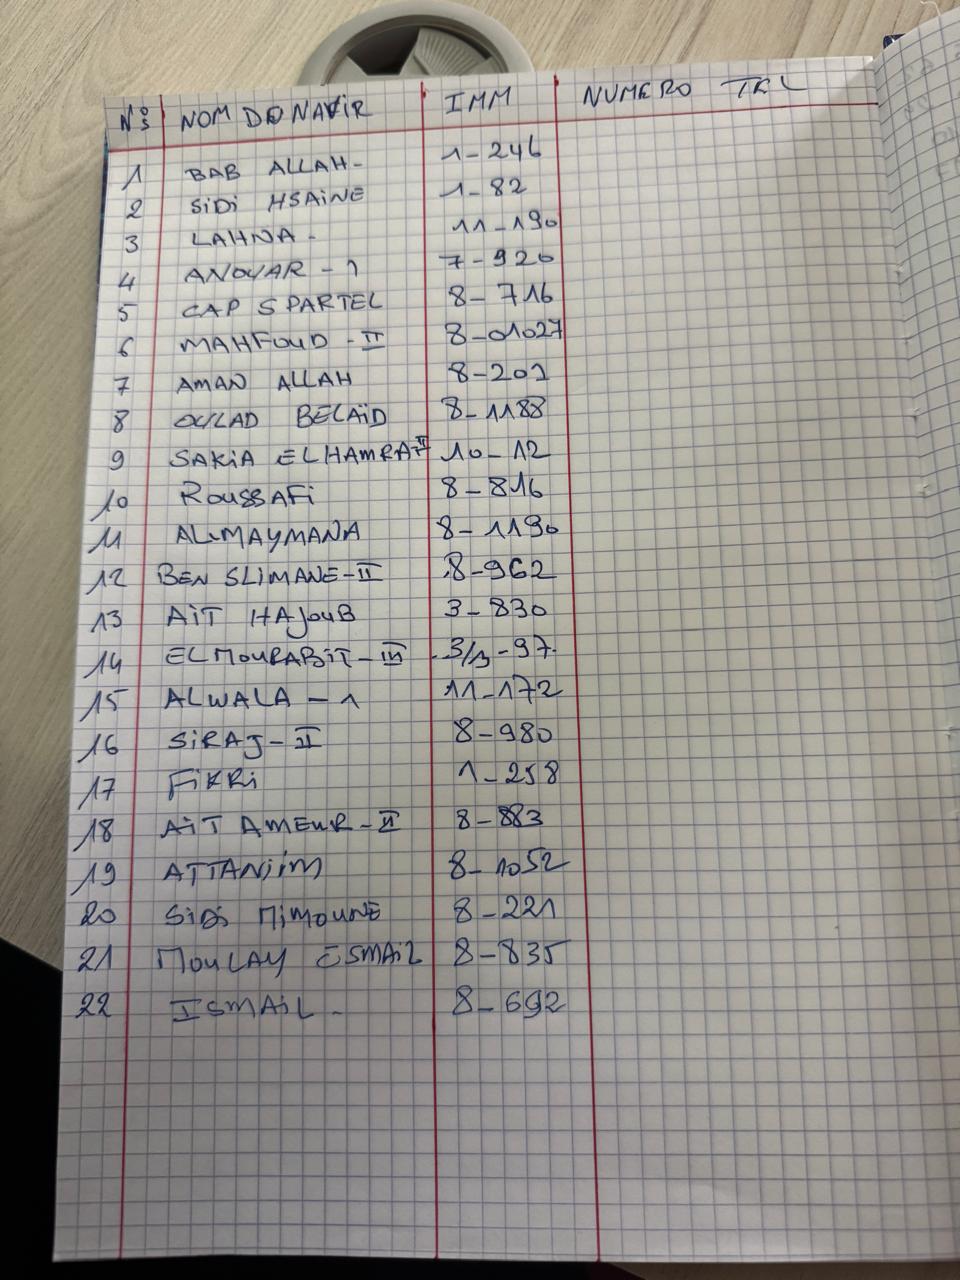 N°s NOM DE NAVIR IMM NUMERO TEL
1 BAB ALLAH - 1-246
2 SiDi HSAiNE 1-82
3 LAHNA - 11-190
4 ANOUAR - 1 7-920
5 CAP SPARTEL 8-716
6 MAHFOUD - II 8-01027
7 AMAN ALLAH 8-201
8 OULAD BELAÏD 8-1188
9 SAKiA ELHAMRA II 10-12
10 ROUSSAFi 8-816
11 AL-MAYMANA 8-1190
12 BEN SLIMANE-II 8-962
13 AiT HAJOUB 3-830
14 ELMOURABiT-III 3/1-97
15 ALWALA - 1 11-172
16 SiRAJ-II 8-980
17 FiKRi 1-258
18 AiT AMEUR-II 8-883
19 ATTANiiM 8-1052
20 SiDi MiMOUNE 8-221
21 MOULAY ESMAiL 8-835
22 ISMAiL - 8-692